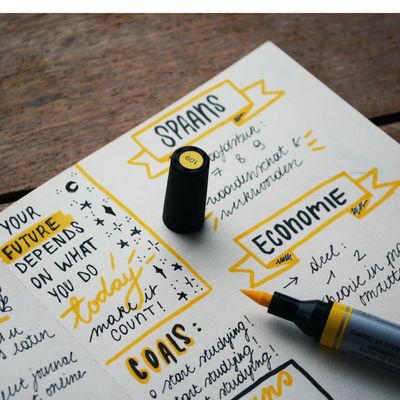 SPAANS
7 8 9
woordenschat &
werkwoorden
YOUR
FUTURE
DEPENDS
ON WHAT
YOU DO
today
make it
COUNT!
ECONOMIE
→ deel:
1 2
theorie in
GOALS:
start studying!
start studying!
start studying!
journal
online
109